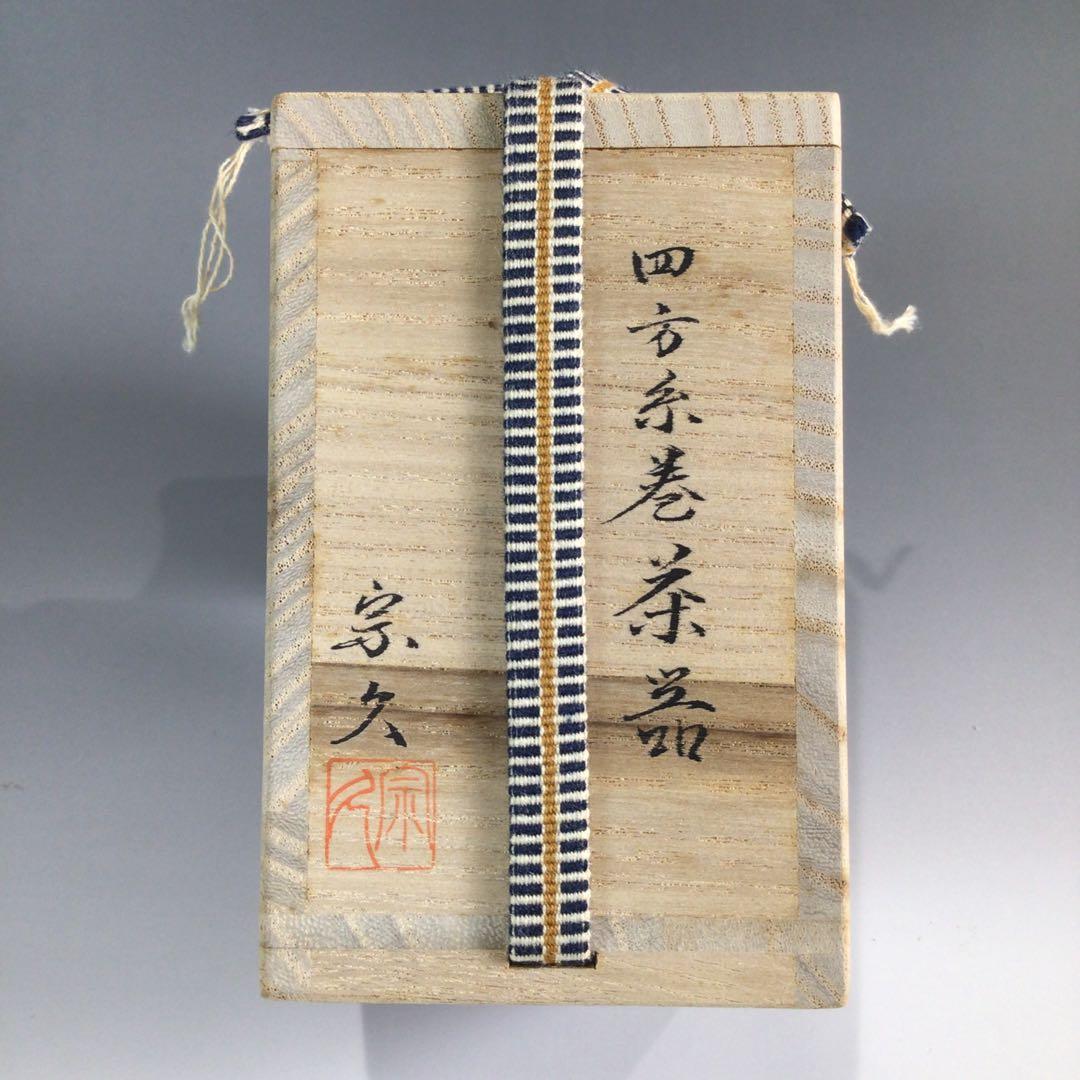 四方糸巻茶器
宗久
宗久